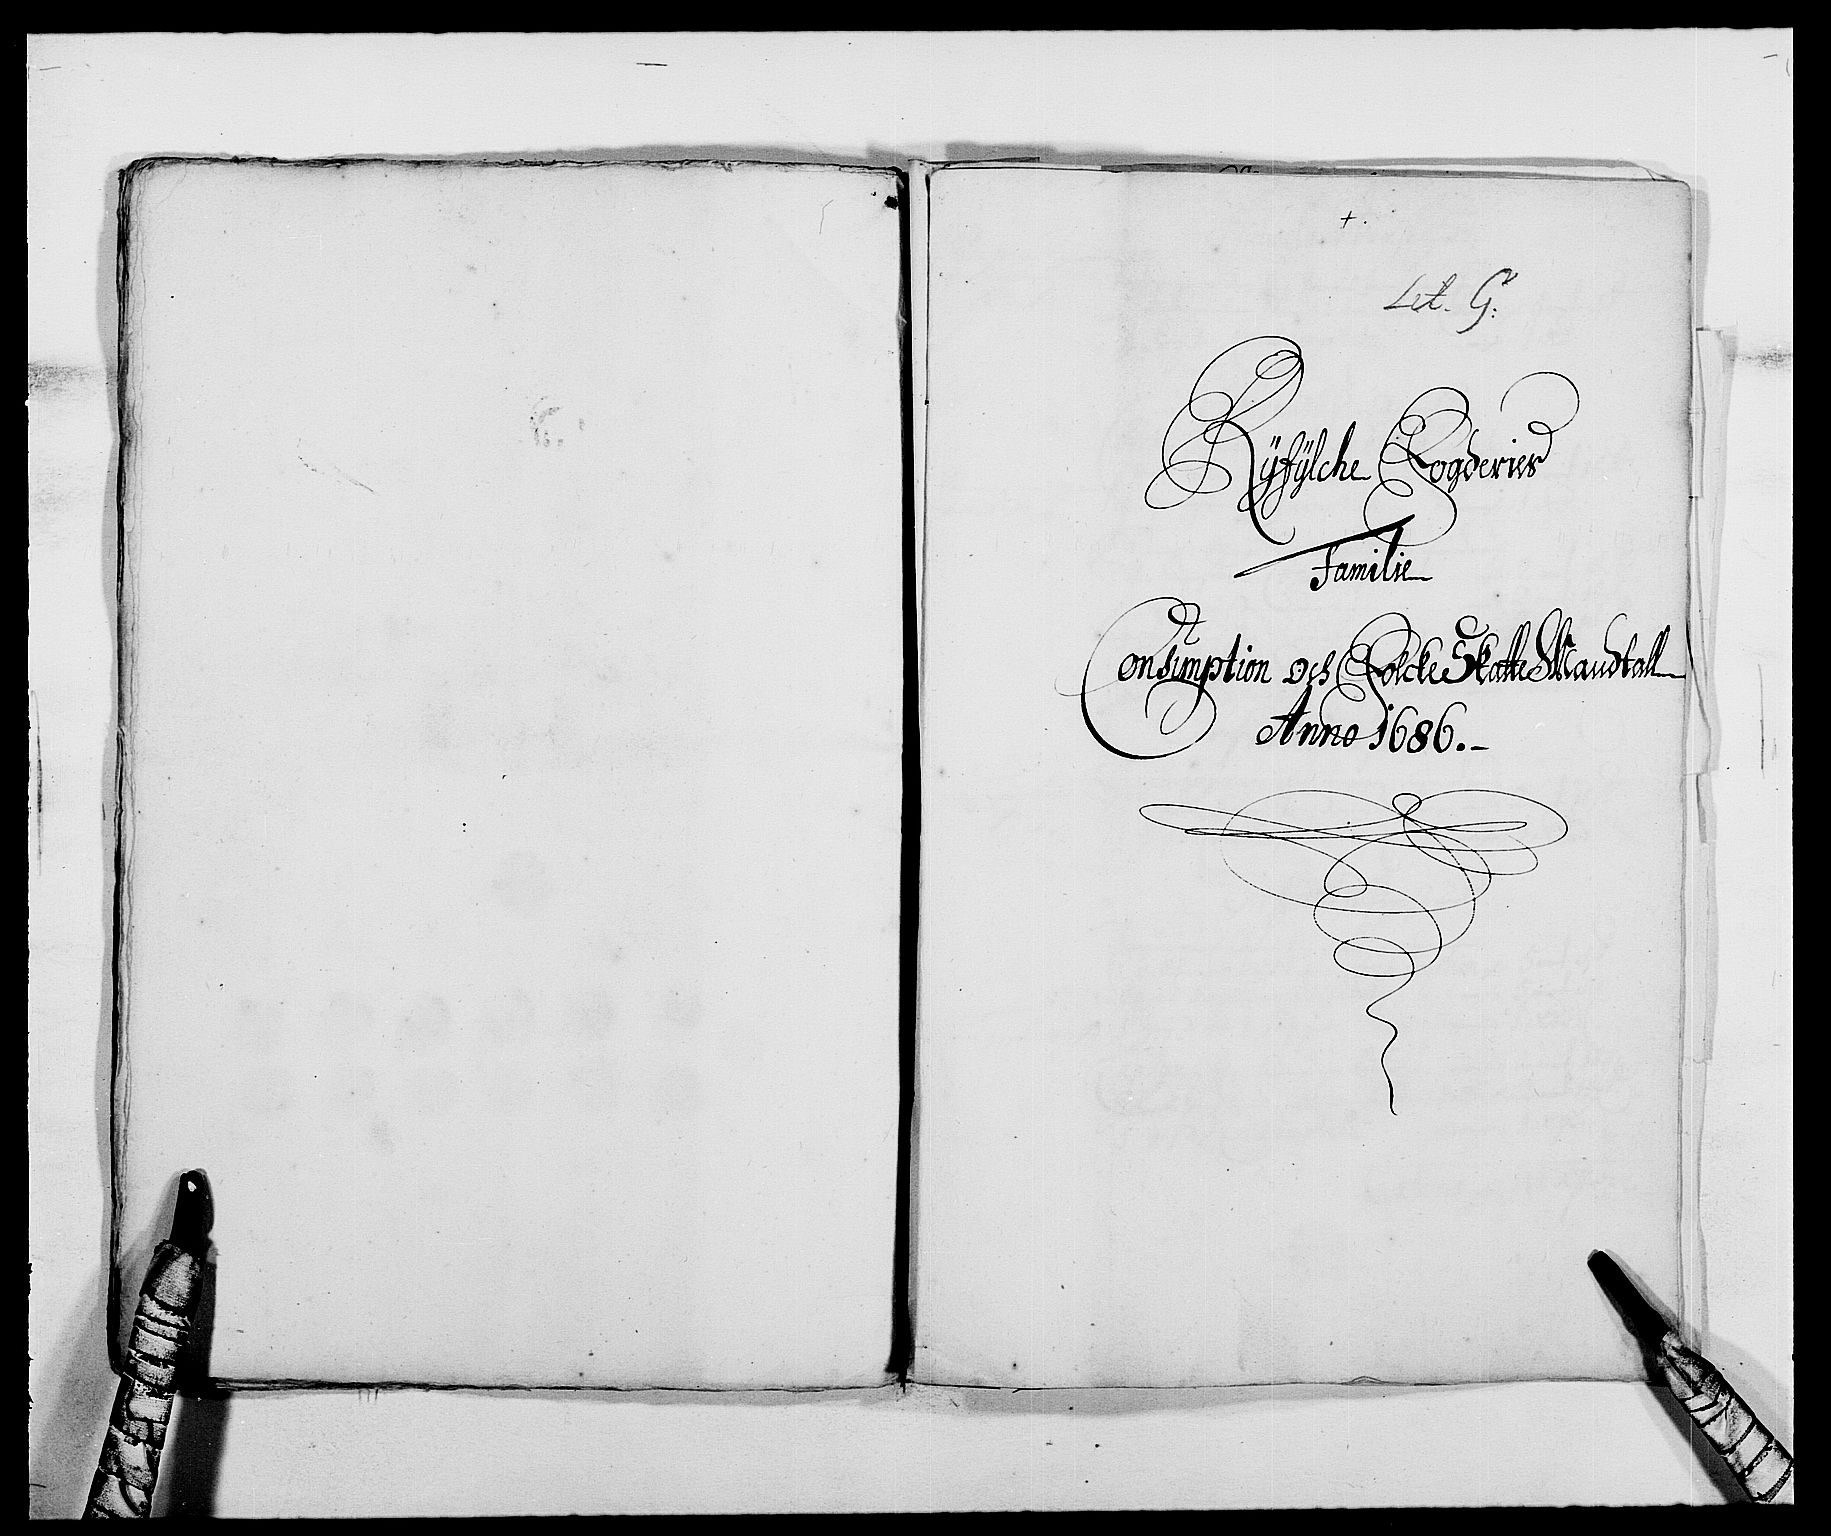 +.
Let. G:
Ryfylche Fogderies
Familie
Consumption och Folcke Skatte Mandtall
Anno 1686.